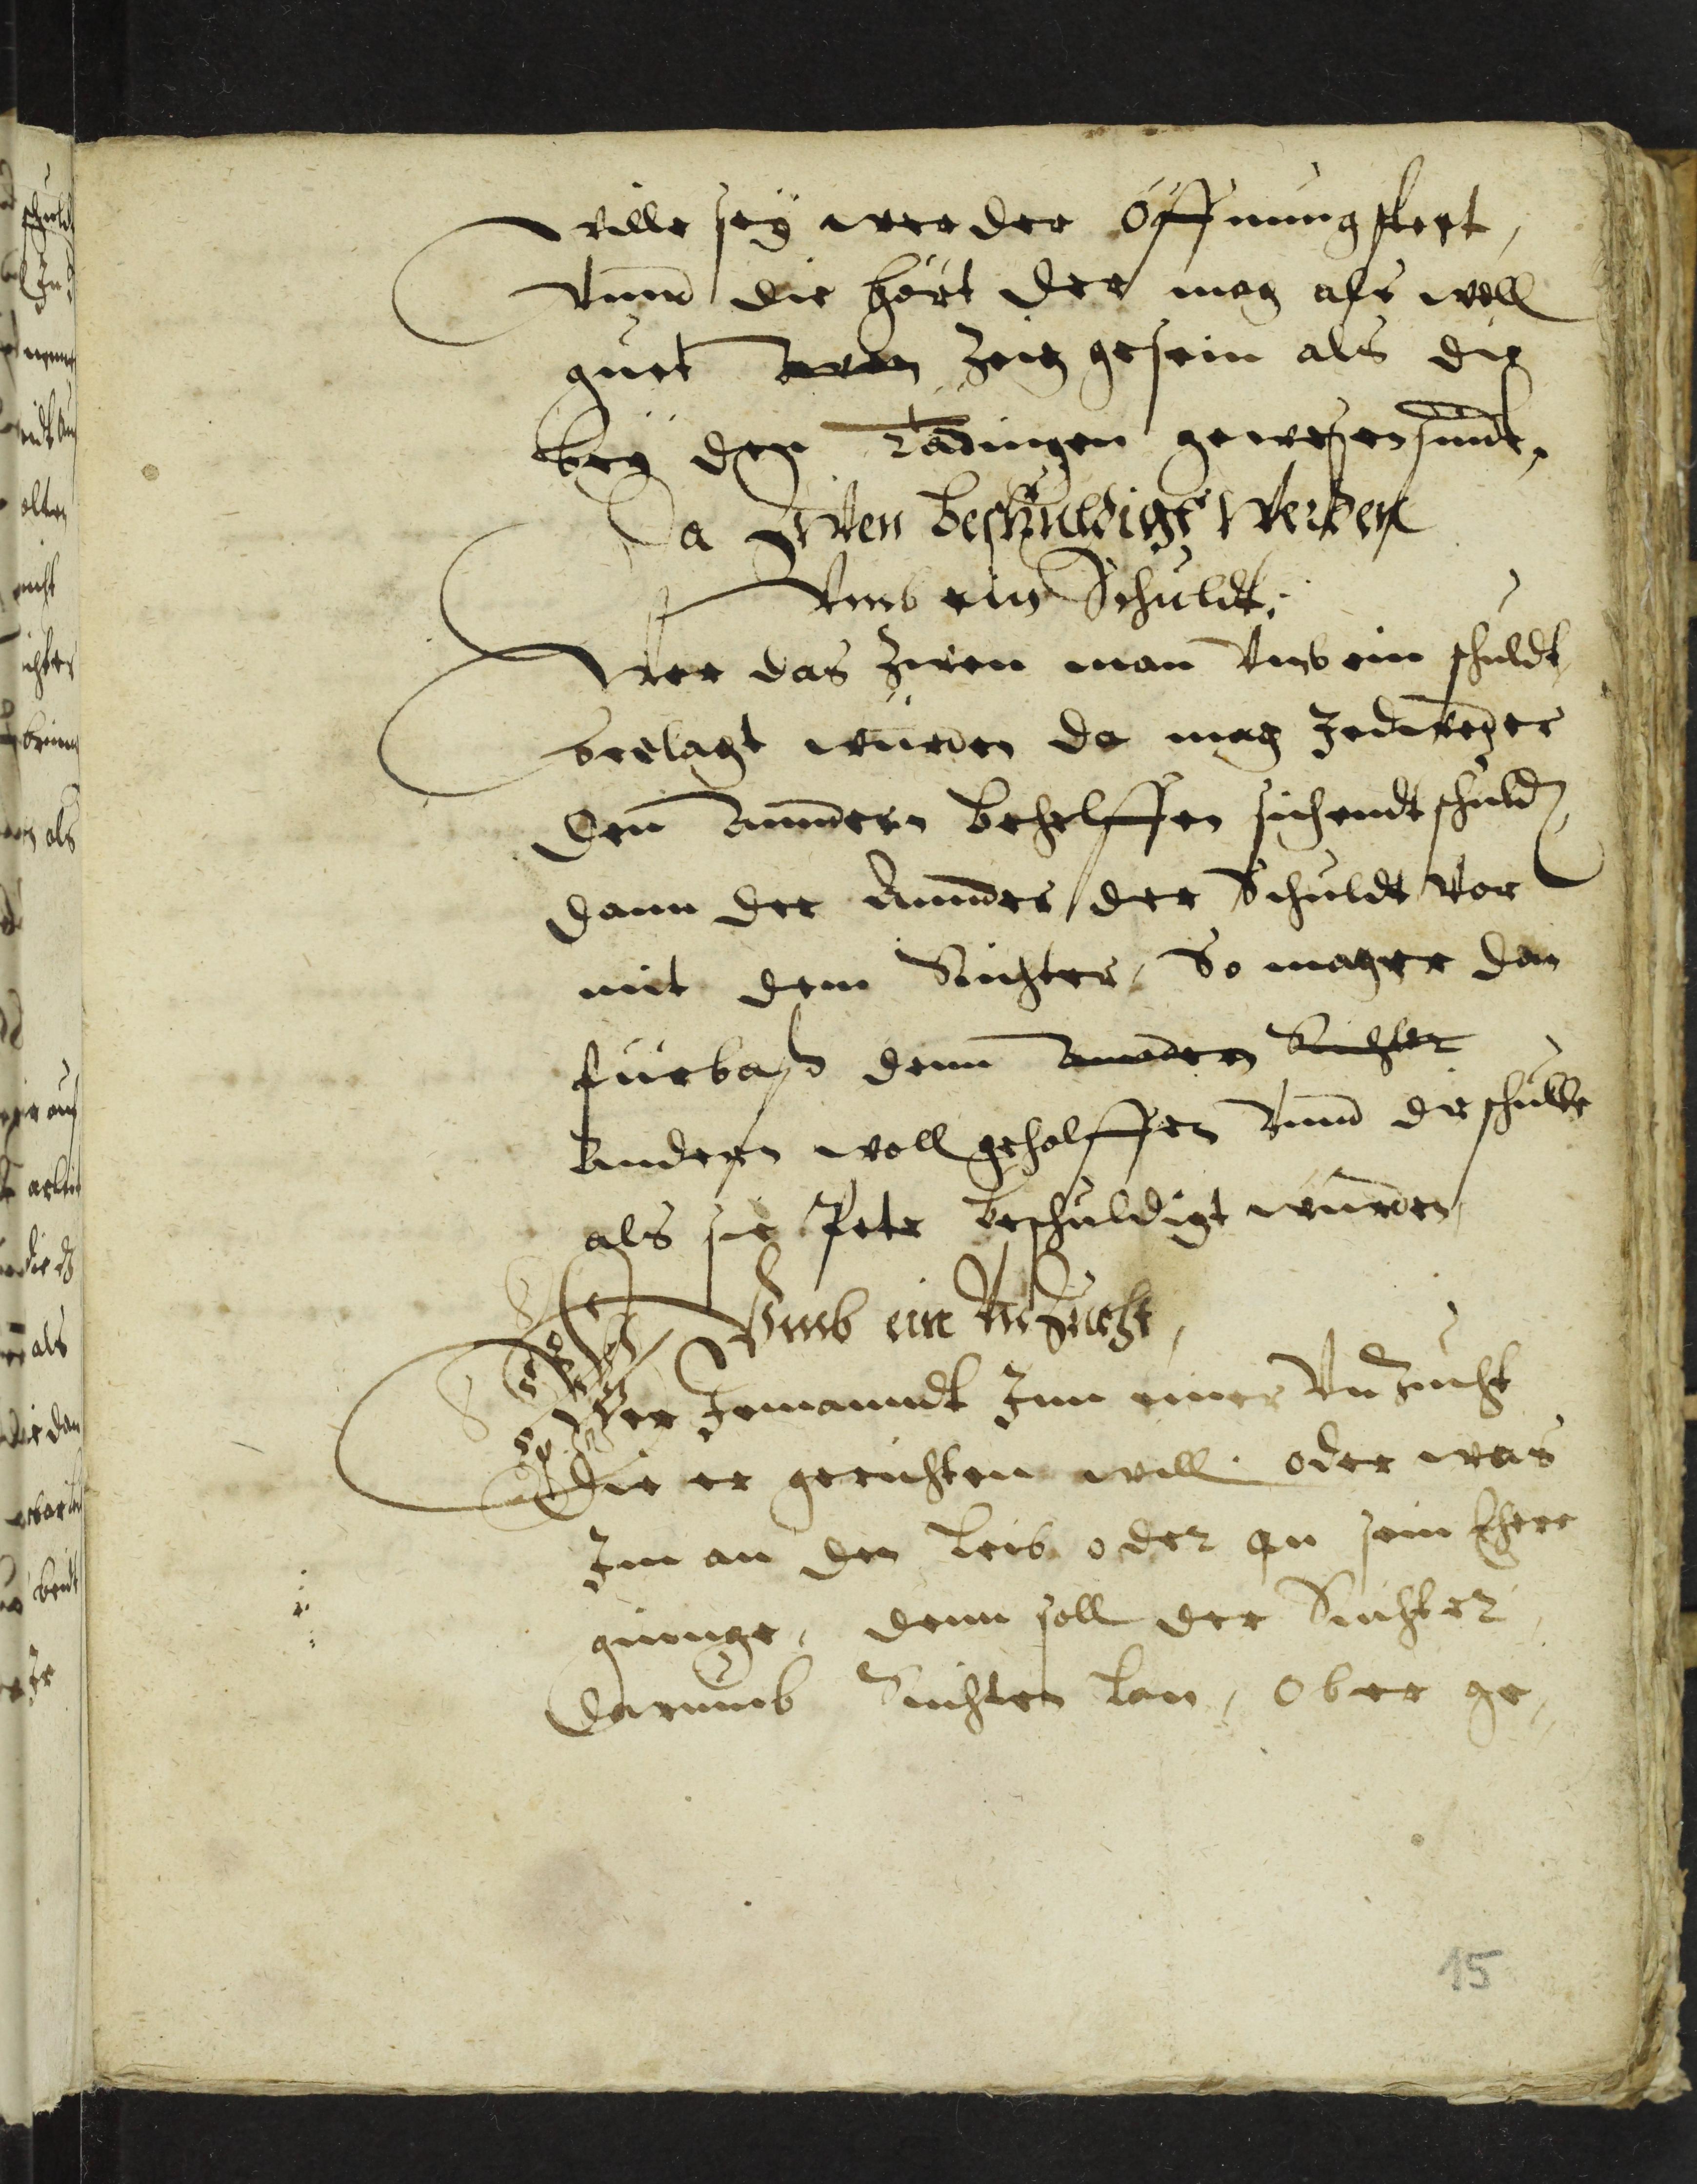 wille sey wer der öffnung stett,
Vnnd die hört der mag als woll
guet wen Zeig gesein als die
bey den Tädingen gewesen sindt.
Da Zwen beschuldigt Werden
Vmb ein Schuldt.
Wer das Zwen man Vmb ein schuldt
beclagt wurden da mag Jedweder
dem Anndern behelffen sich endtschuld
dann der Annder der Schuldt Vor
mit dem Richter, So mag er dan
fürbaß dem Anndern Richter
Andern woll geholffen Vnnd die schulde
als sie Jete beschuldigt wurden
Vmb ein Vnzucht,
Wer Jemanndt Jnn einer Vnzucht
die er gerichten will. oder was
Jm an den Leib oder an sein Ehere
gienge, dem soll der Richter
darumb Richten lan, Ober ge,
15